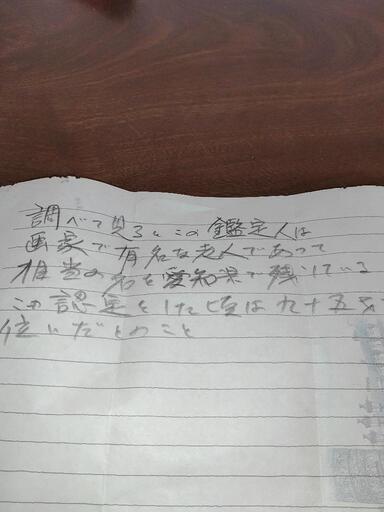 調べて見るとこの鑑定人は
画家で有名な老人であって
相当の名を愛知県で残している
この認定をした頃は九十五才
位いだとのこと